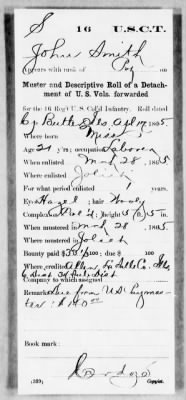 S 16 U.S.C.T.
John Smith
Appears with rank of Pvt on
Muster and Descriptive Roll of a Detach-
ment of U. S. Vols. forwarded
for the 16 Reg't U. S. Col'd Infantry. Roll dated
Ills Apl 17 1865
Where born Miss
Age 21 y'rs; occupation Laborer
When enlisted Mch 28, 1865
Where enlisted Joliet
For what period enlisted 1 years.
Eyes Hazel; hair Wooly
Complexion; height 5 ft. 5 in.
When mustered in Mch 28, 1865
Where mustered in Joliet
Bounty paid $33 /100; due $ /100
Where credited La Salle Co. Ills
Company to which assigned
Remarks: Due from U.S.
Book mark:
(339) Copyist.